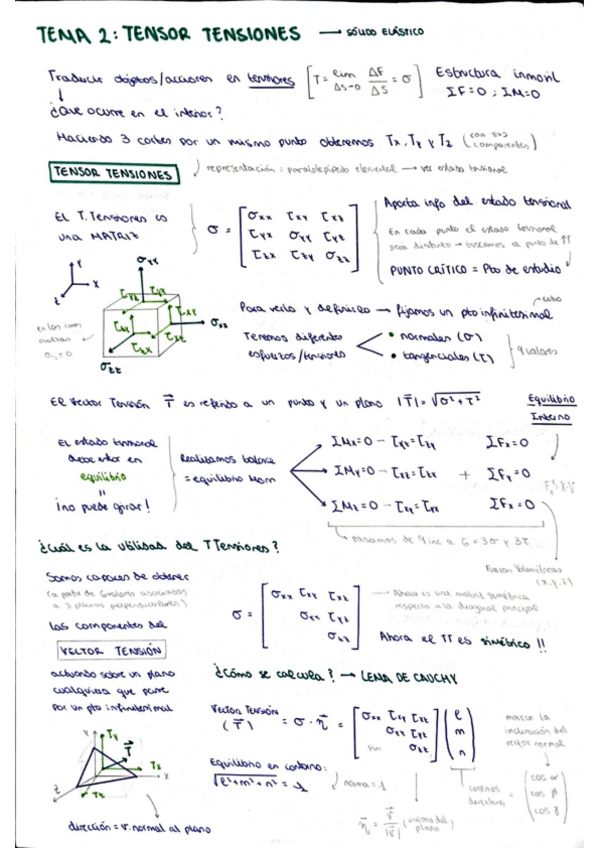 TEMA 2: TENSOR TENSIONES → SÓLIDO ELÁSTICO
Traducir objetos/acciones en tensiones [T = lim ΔS→0 ΔF/ΔS = σ] Estructura inmóvil
ΣF=0 ; ΣM=0
¿Qué ocurre en el interior?
Haciendo 3 cortes por un mismo punto obtenemos Tx, Ty y Tz (con sus componentes)
TENSOR TENSIONES
representación = paralelepípedo elemental → ver estado tensional
El T. Tensiones es
una MATRIZ
σ = [σxx τxy τxz
τyx σyy τyz
τzx τzy σzz]
Aporta info del estado tensional
En cada punto el estado tensional
será distinto → buscamos el punto de ↑↑
PUNTO CRÍTICO = Pto de estudio
Y
X
Z
σyy
τyz
τyx
τxy
τzx
τxz
σxx
σzz
en las caras
ocultas
Para verlo y definirlo → fijamos un pto infinitesimal
cubo
Tenemos diferentes
esfuerzos/tensiones
• normales (σ)
• tangenciales (τ)
9 valores
El Vector Tensión T es referido a un punto y un plano |T| = √σ²+τ²
Equilibrio
Interno
El estado tensional
debe estar en
equilibrio
¡no puede girar!
Realizamos balance
= equilibrio Mom
ΣMx=0 - τyz=τzy ΣFx=0
ΣMy=0 - τxz=τzx + ΣFy=0
ΣMz=0 - τyx=τxy ΣFx=0
pasamos de 9 inc a 6 = 3σ y 3τ
Fuerzas Volumétricas
(X,Y,Z)
¿Cuál es la utilidad del T Tensiones?
Somos capaces de obtener
(a partir de 6 valores asociados
a 3 planos perpendiculares)
las componentes del
VECTOR TENSIÓN
actuando sobre un plano
cualquiera que pase
por un pto infinitesimal
σ = [σxx τxy τxz
σyy τyz
σzz]
Ahora es una matriz simétrica
respecto a la diagonal principal
Ahora el TT es simétrico !!
¿Cómo se calcula? → LEMA DE CAUCHY
Vector Tensión
(T) = σ · n = [σxx τxy τxz
σyy τyz
sim σzz] (l
m
n)
marcan la
inclinación del
vector normal
Equilibrio en contorno:
√l²+m²+n² = 1
norma = 1
cosenos
directores
= (cos α
cos β
cos γ)
n = v/|v| (vector del
plano)
Y
Ty
T
Tx
X
Tz
Z
dirección = v. normal al plano